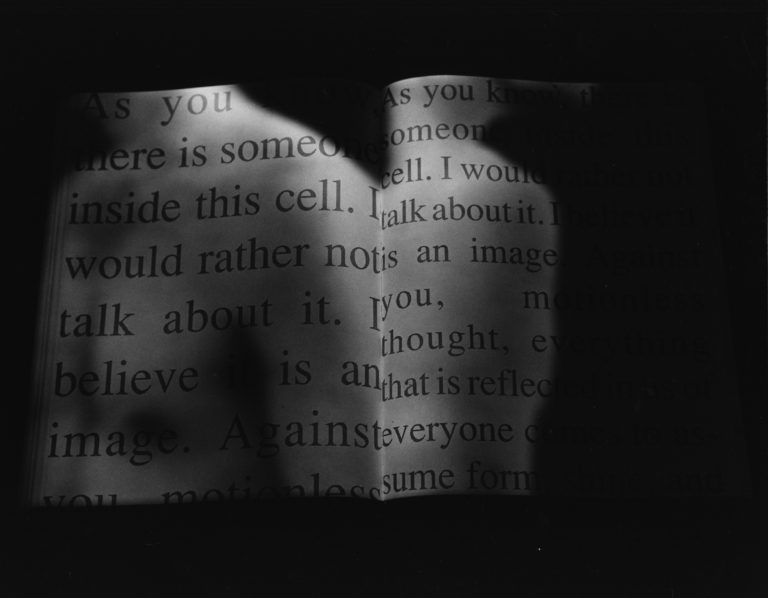 As you know,
there is someone
inside this cell. I
would rather not
talk about it. I
believe it is an
image. Against
you motionless
As you know, there is
someone inside this
cell. I would rather not
talk about it. I believe it
is an image. Against
you, motionless
thought, everything
that is reflected in us of
everyone comes to as-
sume form, shine, and